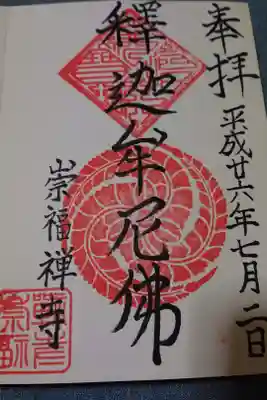 奉拝
平成廿六年七月二日
釋迦牟尼佛
崇福禅寺